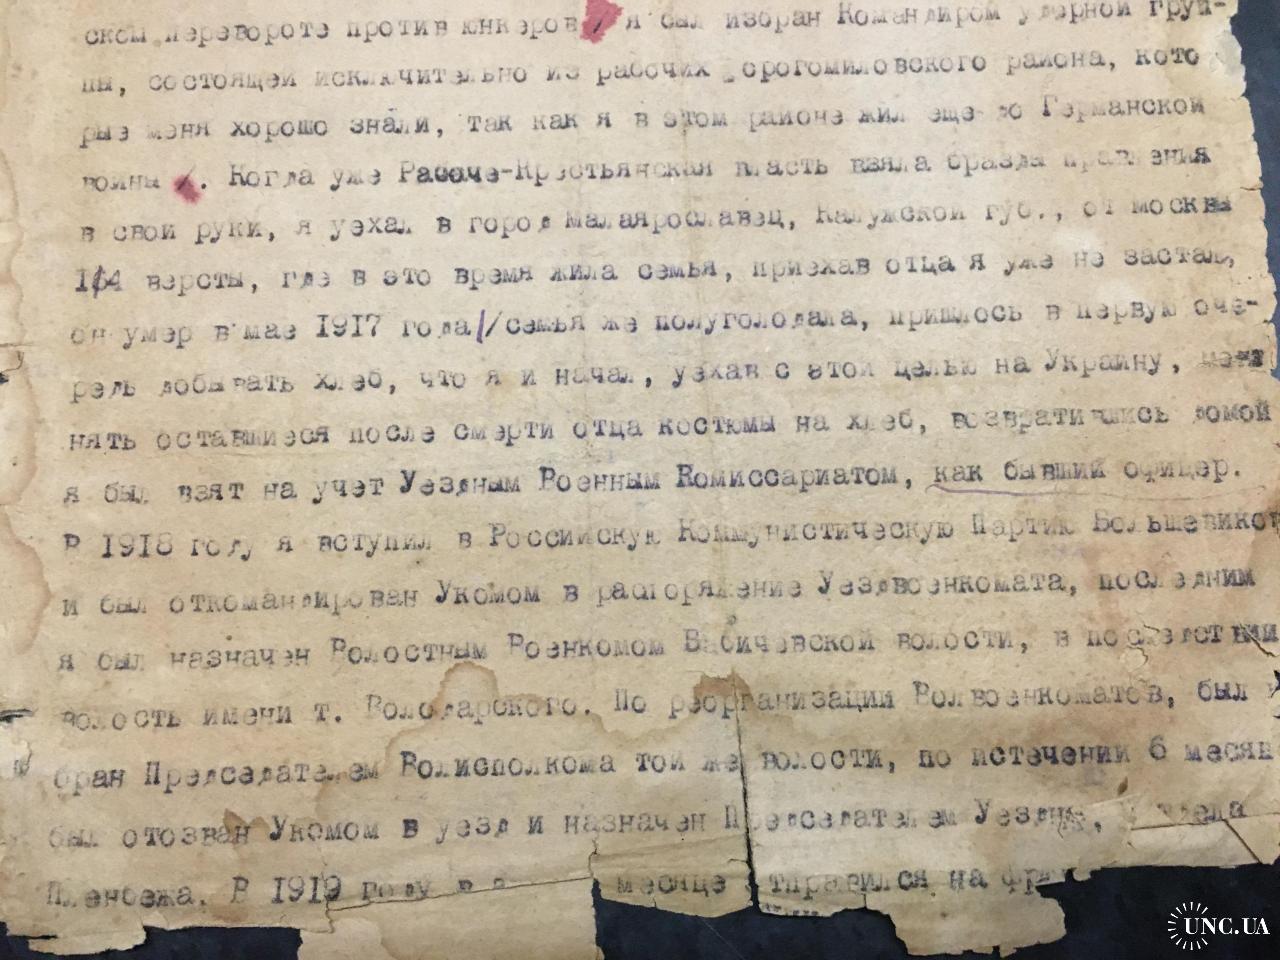 ском перевороте против юнкеров / я был избран Командиром ударной груп-
пы, состоящей исключительно из рабочих Дорогомиловского района, кото
рые меня хорошо знали, так как я в этом районе жил еще до Германской
войны /. Когда уже Рабоче-Крестьянская власть взяла бразды правления
в свои руки, я уехал в город Малаярославец, Калужской губ., от москвы
114 версты, где в это время жила семья, приехав отца я уже не застал,
он умер в мае 1917 года //семья же полуголодала, пришлось в первую оче-
редь добывать хлеб, что я и начал, уехав с этой целью на Украину,
нять оставшиеся после смерти отца костюмы на хлеб, возвратившись домой
я был взят на учет Уездным Военным Комиссариатом, как бывший офицер.
В 1918 году я вступил в Российскую Коммунистическую Партию Большевиков
и был откомандирован Укомом в распоряжение Уездвоенкомата, последним
я был назначен Волостным Военкомом Бабичевской волости, в последствии
волость имени т. Володарского. По реорганизации Волвоенкоматов, был
бран Председателем Волисполкома той же волости, по истечении 6 месяц
был отозван Укомом в уезд и назначен Председателем
Пленбежа. В 1919 году в месяце отправился на
UNC.UA